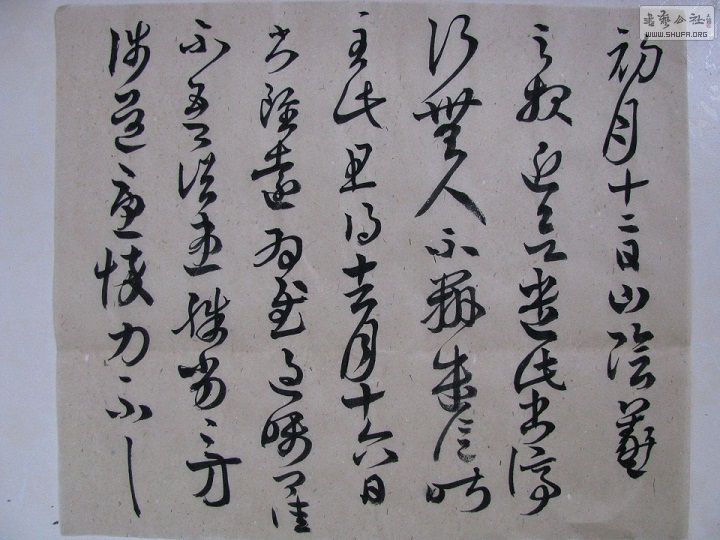 初月十二日山陰羲
之報近欲遣此書停
行無人不辦遣信昨
至此且得去月十六日
書雖遠為慰過囑卿佳
不吾諸患殊劣〻方
涉道憂悴力不具
書藝公社
WWW.SHUFA.ORG